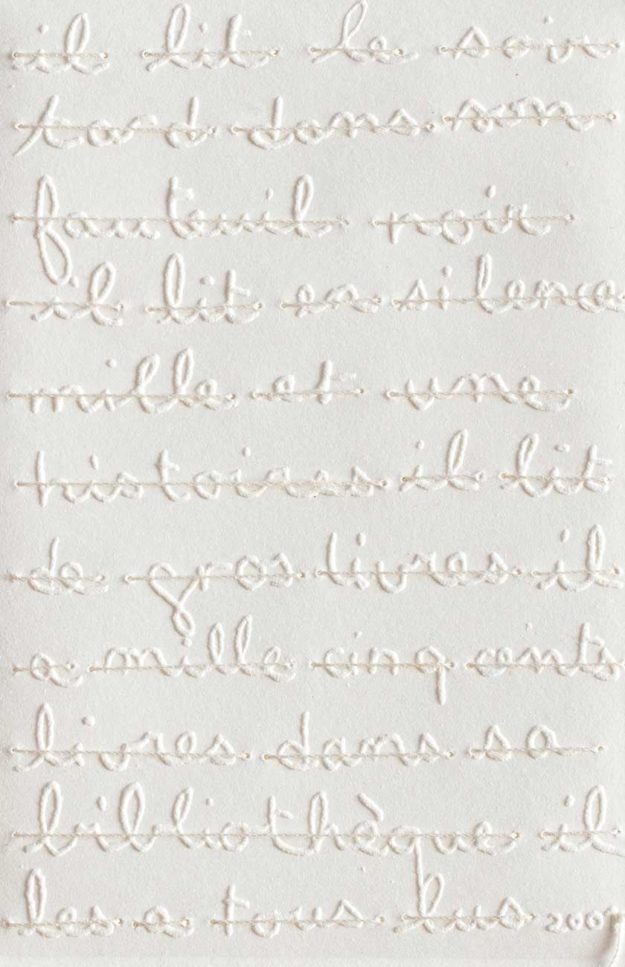 il lit le soir
tard dans son
fauteuil noir
il lit en silence
mille et une
histoires il lit
de gros livres il
a mille cinq cents
livres dans sa
bibliothèque il
les a tous lus